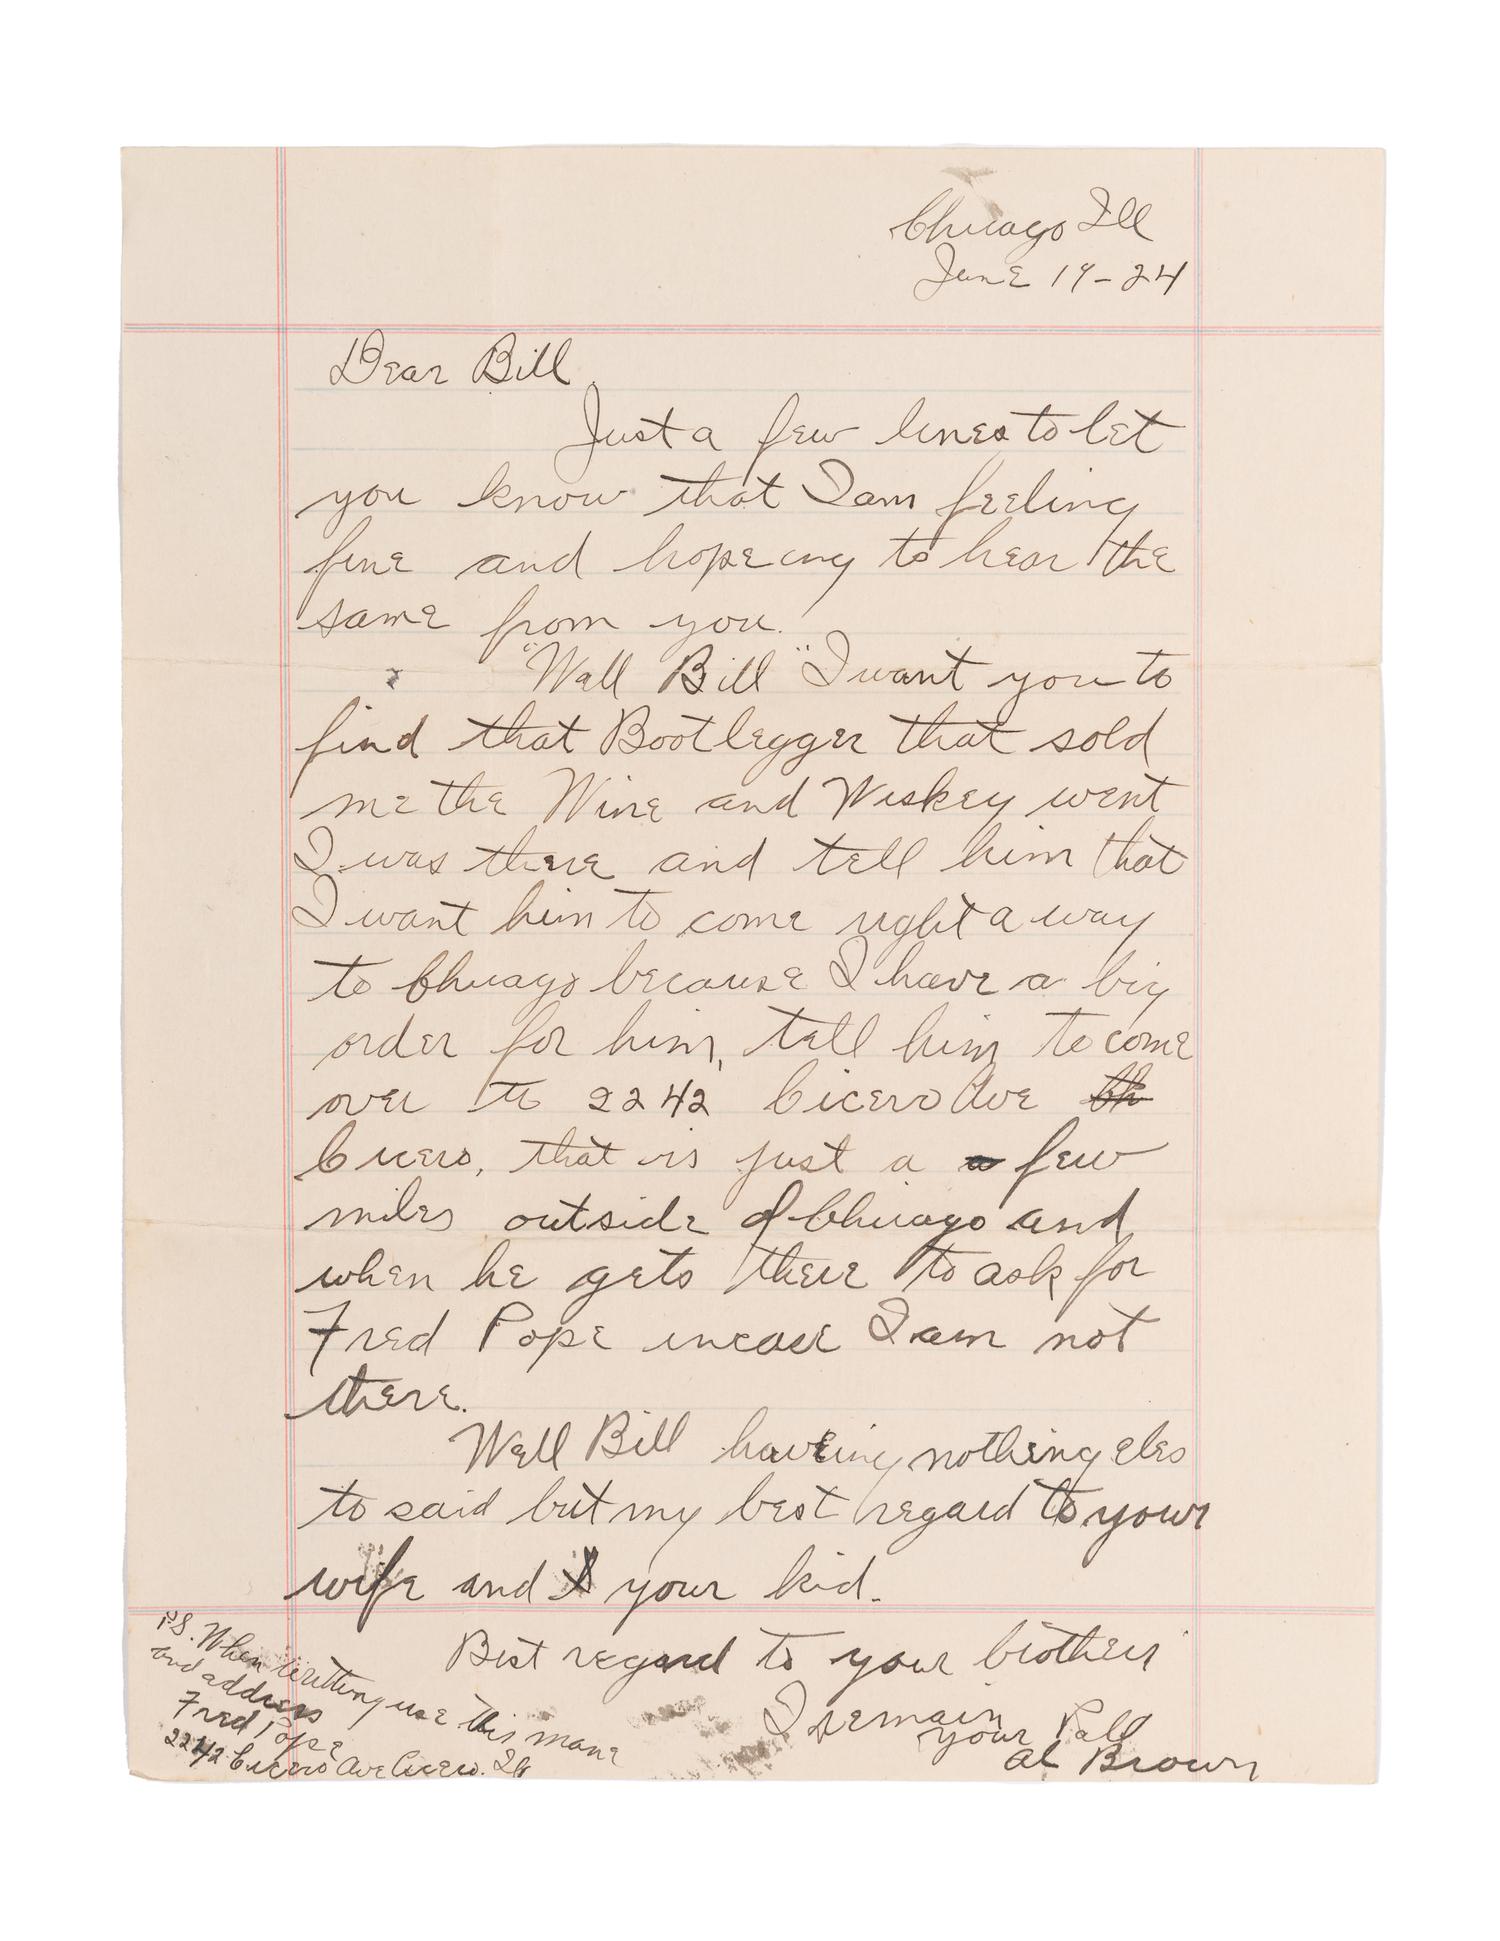 Chicago Ill
June 19-24
Dear Bill
Just a few lines to let
you know that I am feeling
fine and hopeing to hear the
same from you.
"Wall Bill" I want you to
find that Bootlegger that sold
me the Wine and Wiskey went
I was there and tell him that
I want him to come right a way
to Chicago because I have a big
order for him, tell him to come
over to 2242 Cicero Ave
Cicero, that is just a few
miles outside of Chicago and
when he gets there to ask for
Fred Pope incase I am not
there.
Well Bill haveing nothing eles
to said but my best regard to your
wife and your kid.
Best regard to your brothers
I remain
your Pall
Al Brown
P.S. When writting use this mane
and address
Fred Pope
2242 Cicero Ave Cicero. Ill